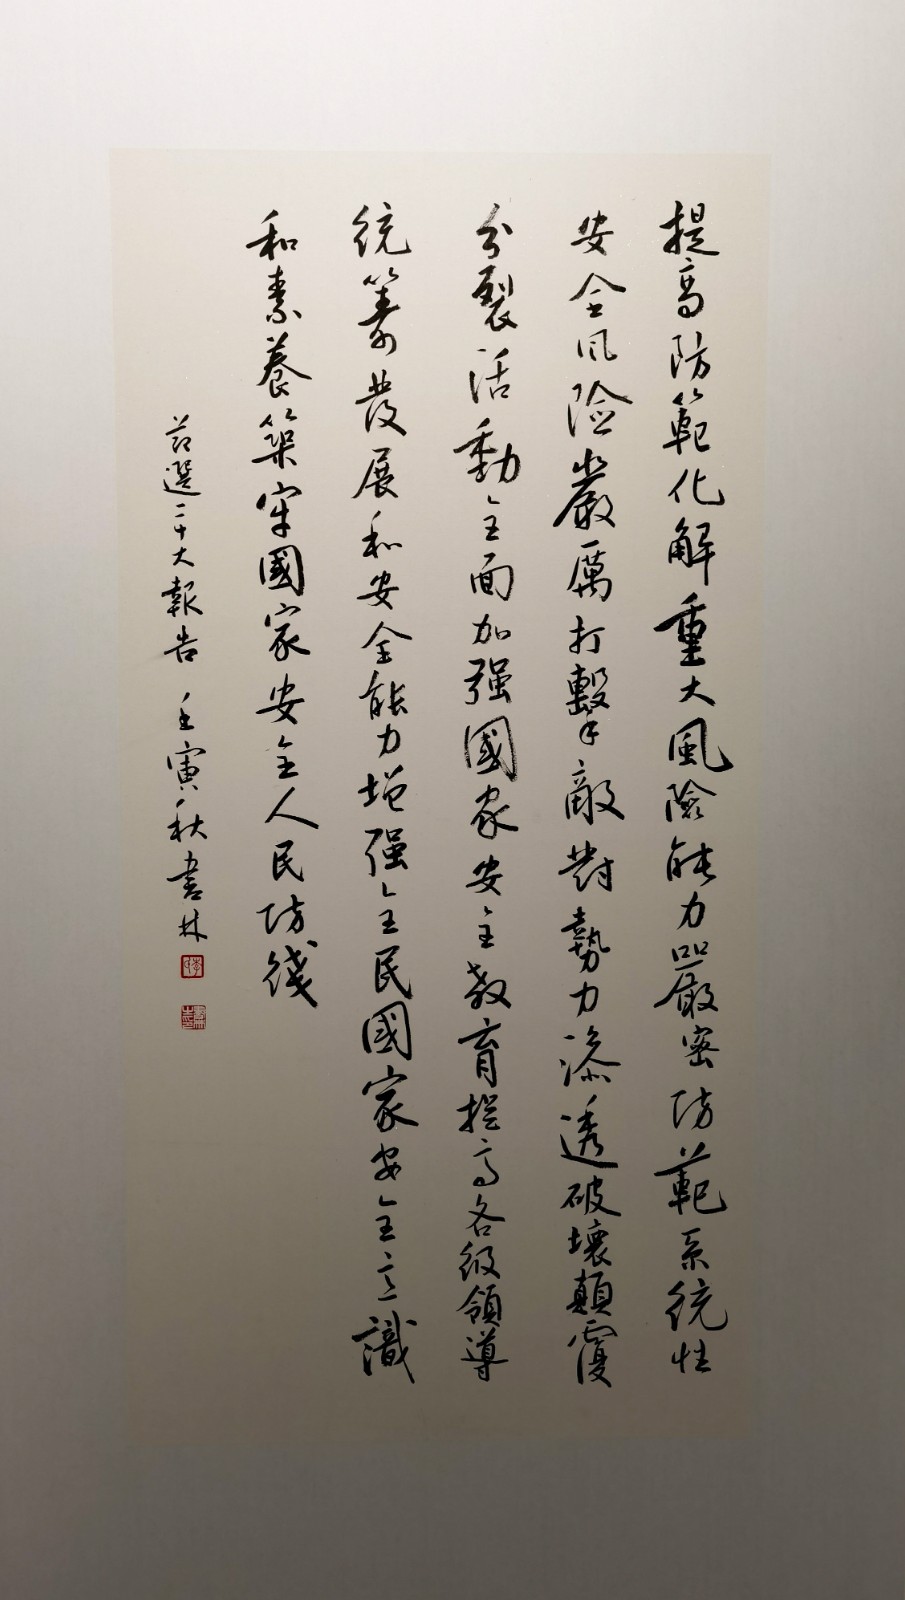 提高防範化解重大風險能力嚴密防範系統性
安全风險嚴厲打擊敵對勢力滲透破壞顛覆
分裂活動全面加强國家安全教育提高各级領導
統籌發展和安全能力增强全民國家安全意識
和素養築牢國家安全人民防綫
节選二十大報告 壬寅秋書林